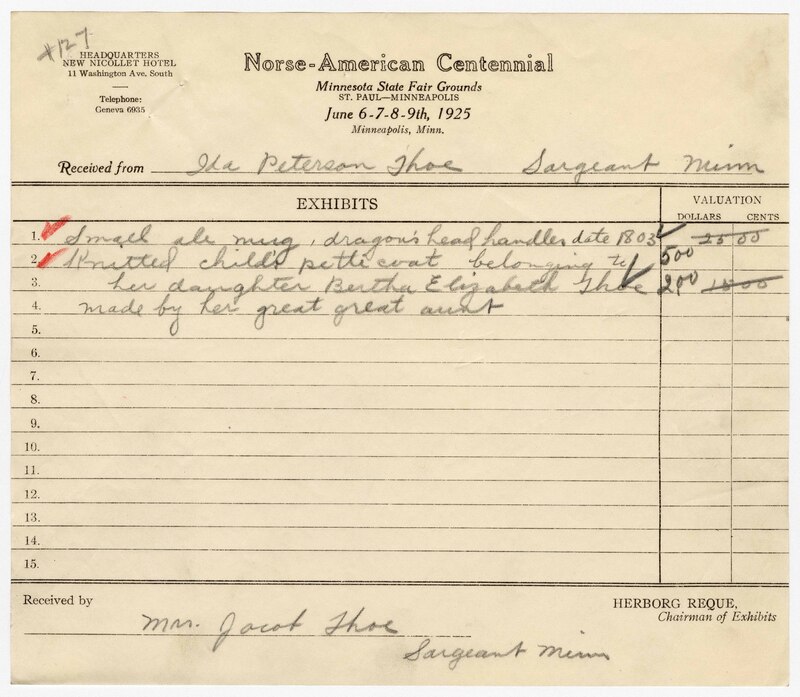 #127
HEADQUARTERS
NEW NICOLLET HOTEL
11 Washington Ave. South
Telephone:
Geneva 6935
Norse-American Centennial
Minnesota State Fair Grounds
ST. PAUL—MINNEAPOLIS
June 6-7-8-9th, 1925
Minneapolis, Minn.
Received from Ida Peterson Thoe Sargeant Minn
EXHIBITS
VALUATION
DOLLARS CENTS
1. Small ale mug, dragon's head handles date 1803 25 00
2. Knitted child's petticoat belonging to 500
3. her daughter Bertha Elizabeth Thoe 200 15 00
4. made by her great great aunt
5.
6.
7.
8.
9.
10.
11.
12.
13.
14.
15.
Received by
Mrs. Jacob Thoe
Sargeant Minn
HERBORG REQUE,
Chairman of Exhibits